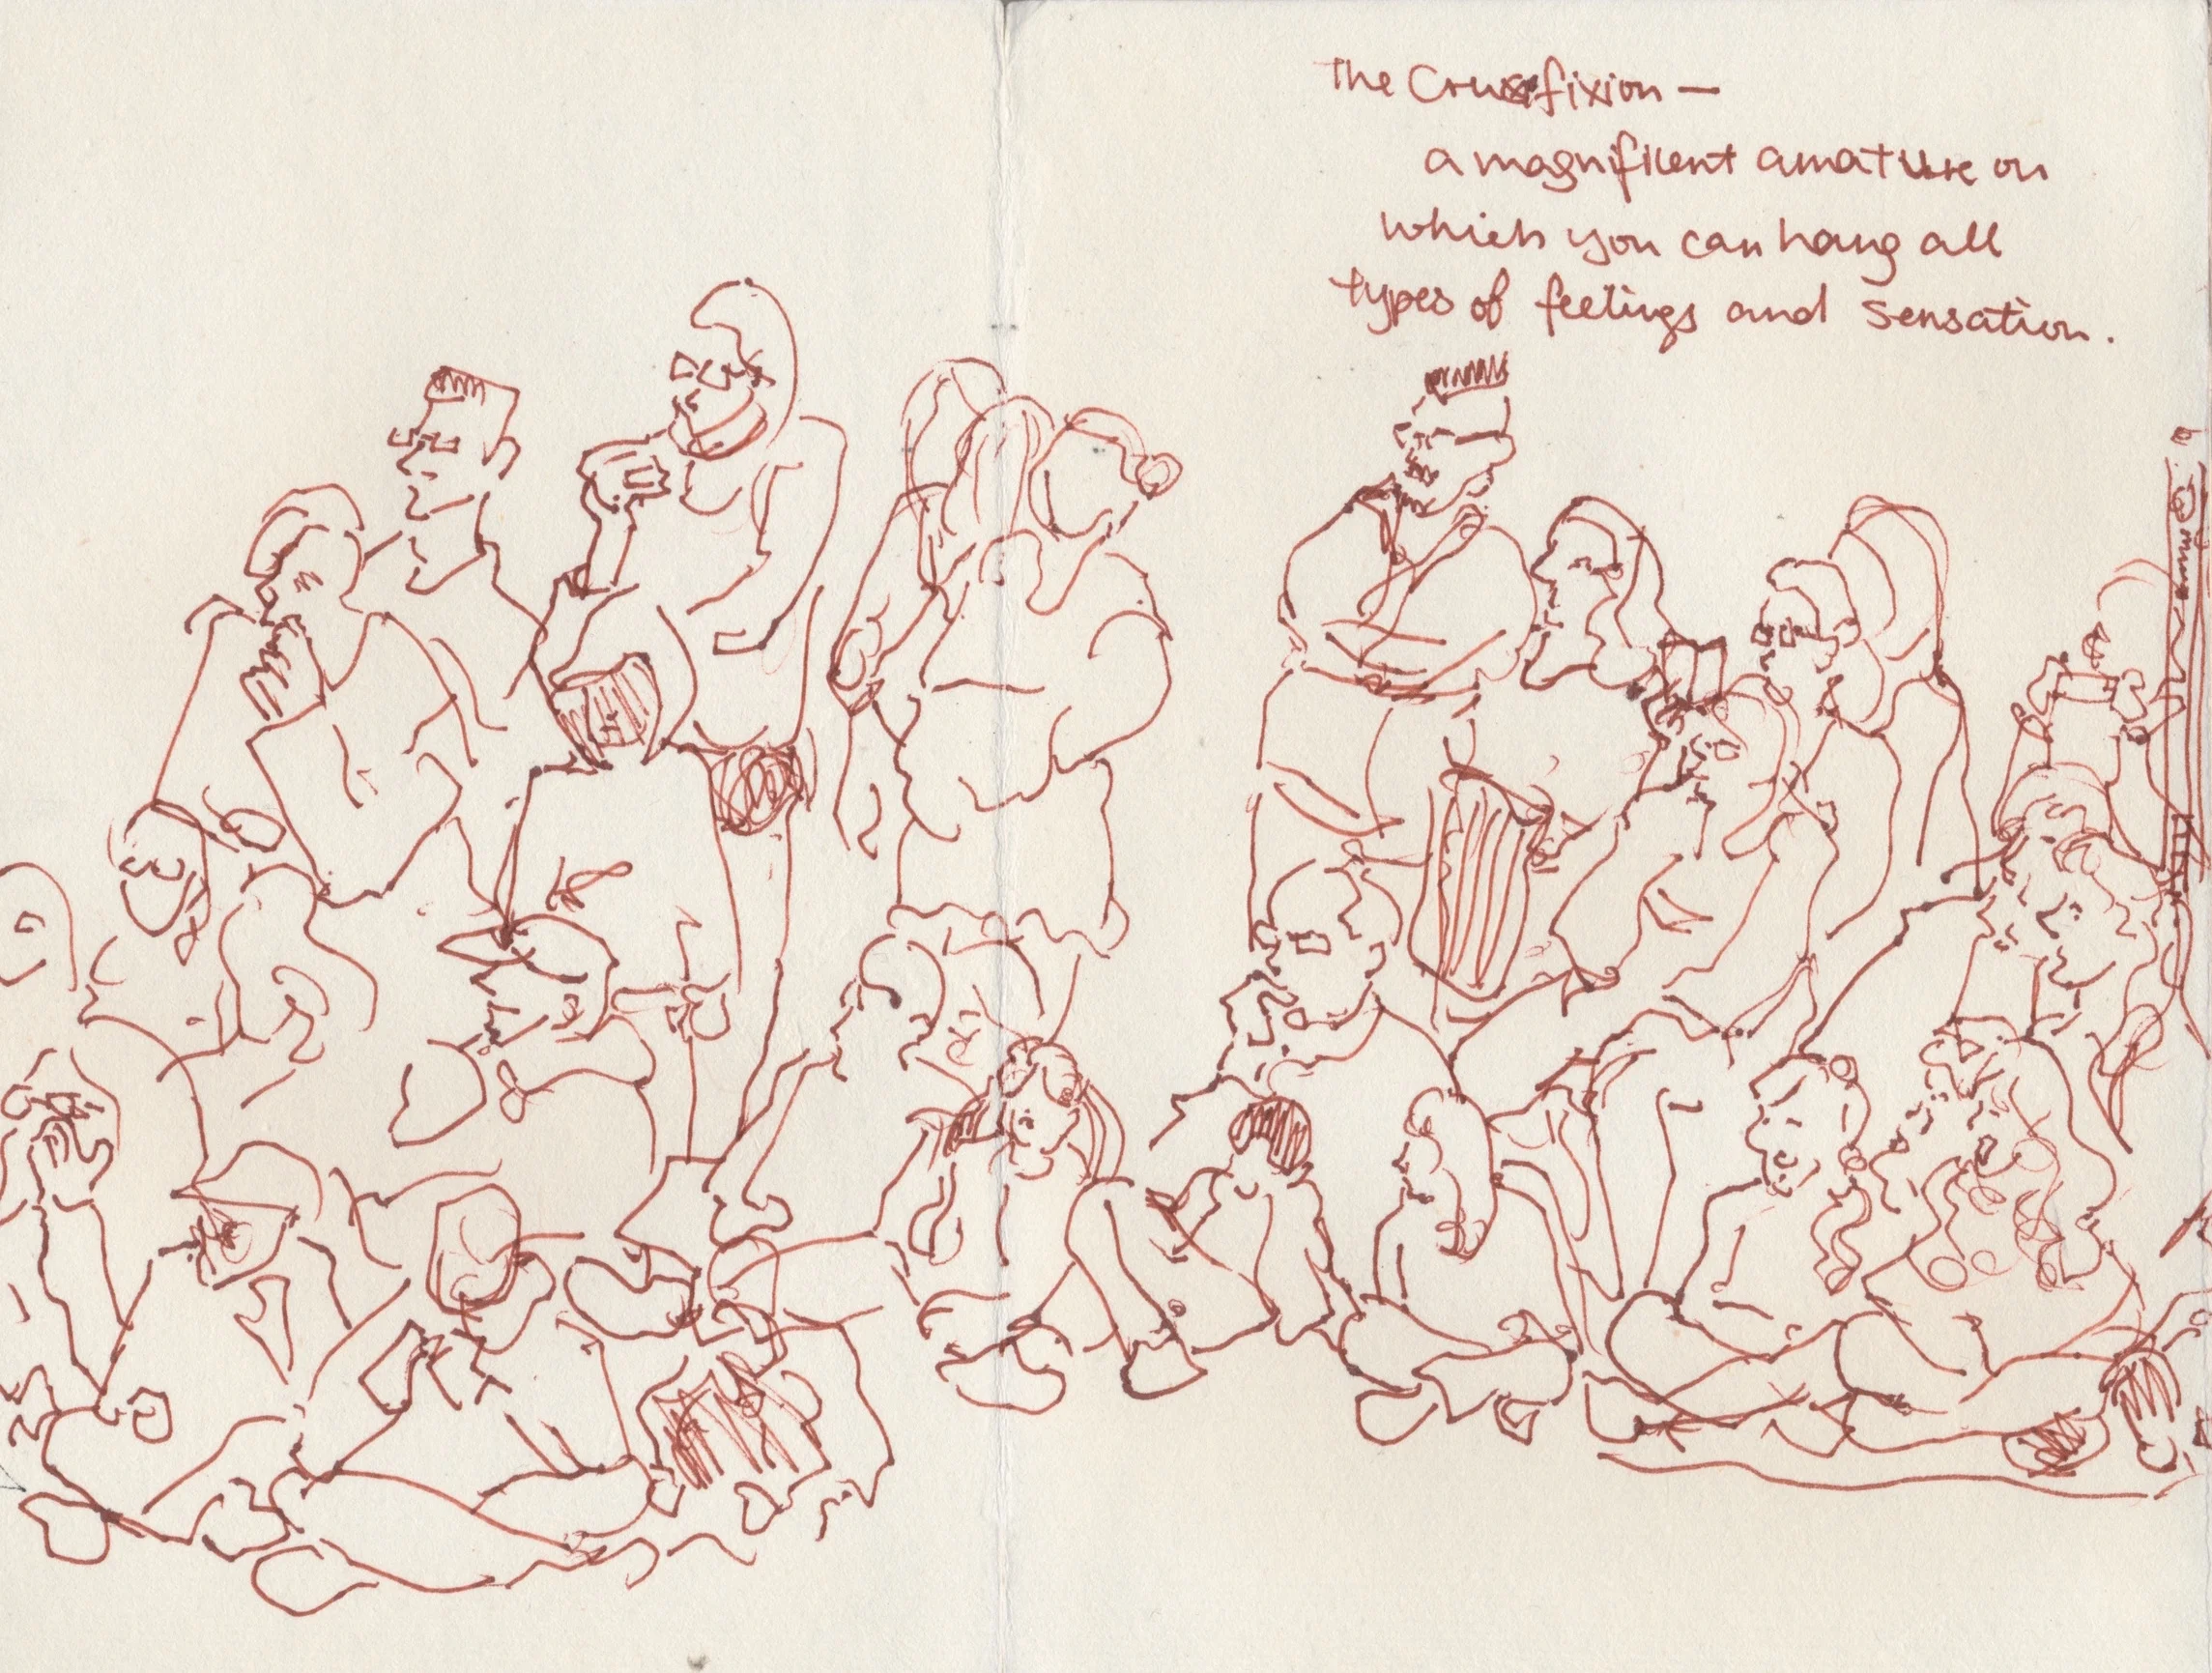 The Crucifixion —
a magnificent amature on
which you can hang all
types of feelings and sensation.